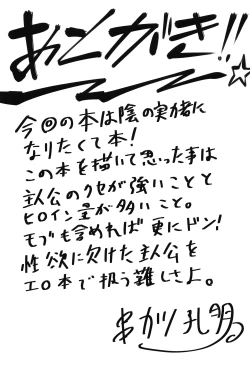 あとがき!!
今回の本は陰の実力者に
なりたくて本!
この本を描いて思った事は
主人公のクセが強いことと
ヒロイン量が多いこと。
モブも含めれば更にドン!
性欲に欠けた主人公を
エロ本で扱う難しさよ。
串カツ孔明